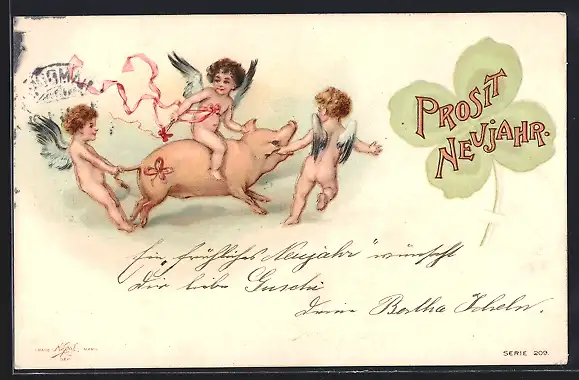 PROSIT
NEUJAHR.
Ein „fröhliches Neujahr“ wünscht
Dir liebe Guschi
Deine Bertha
SERIE 209.